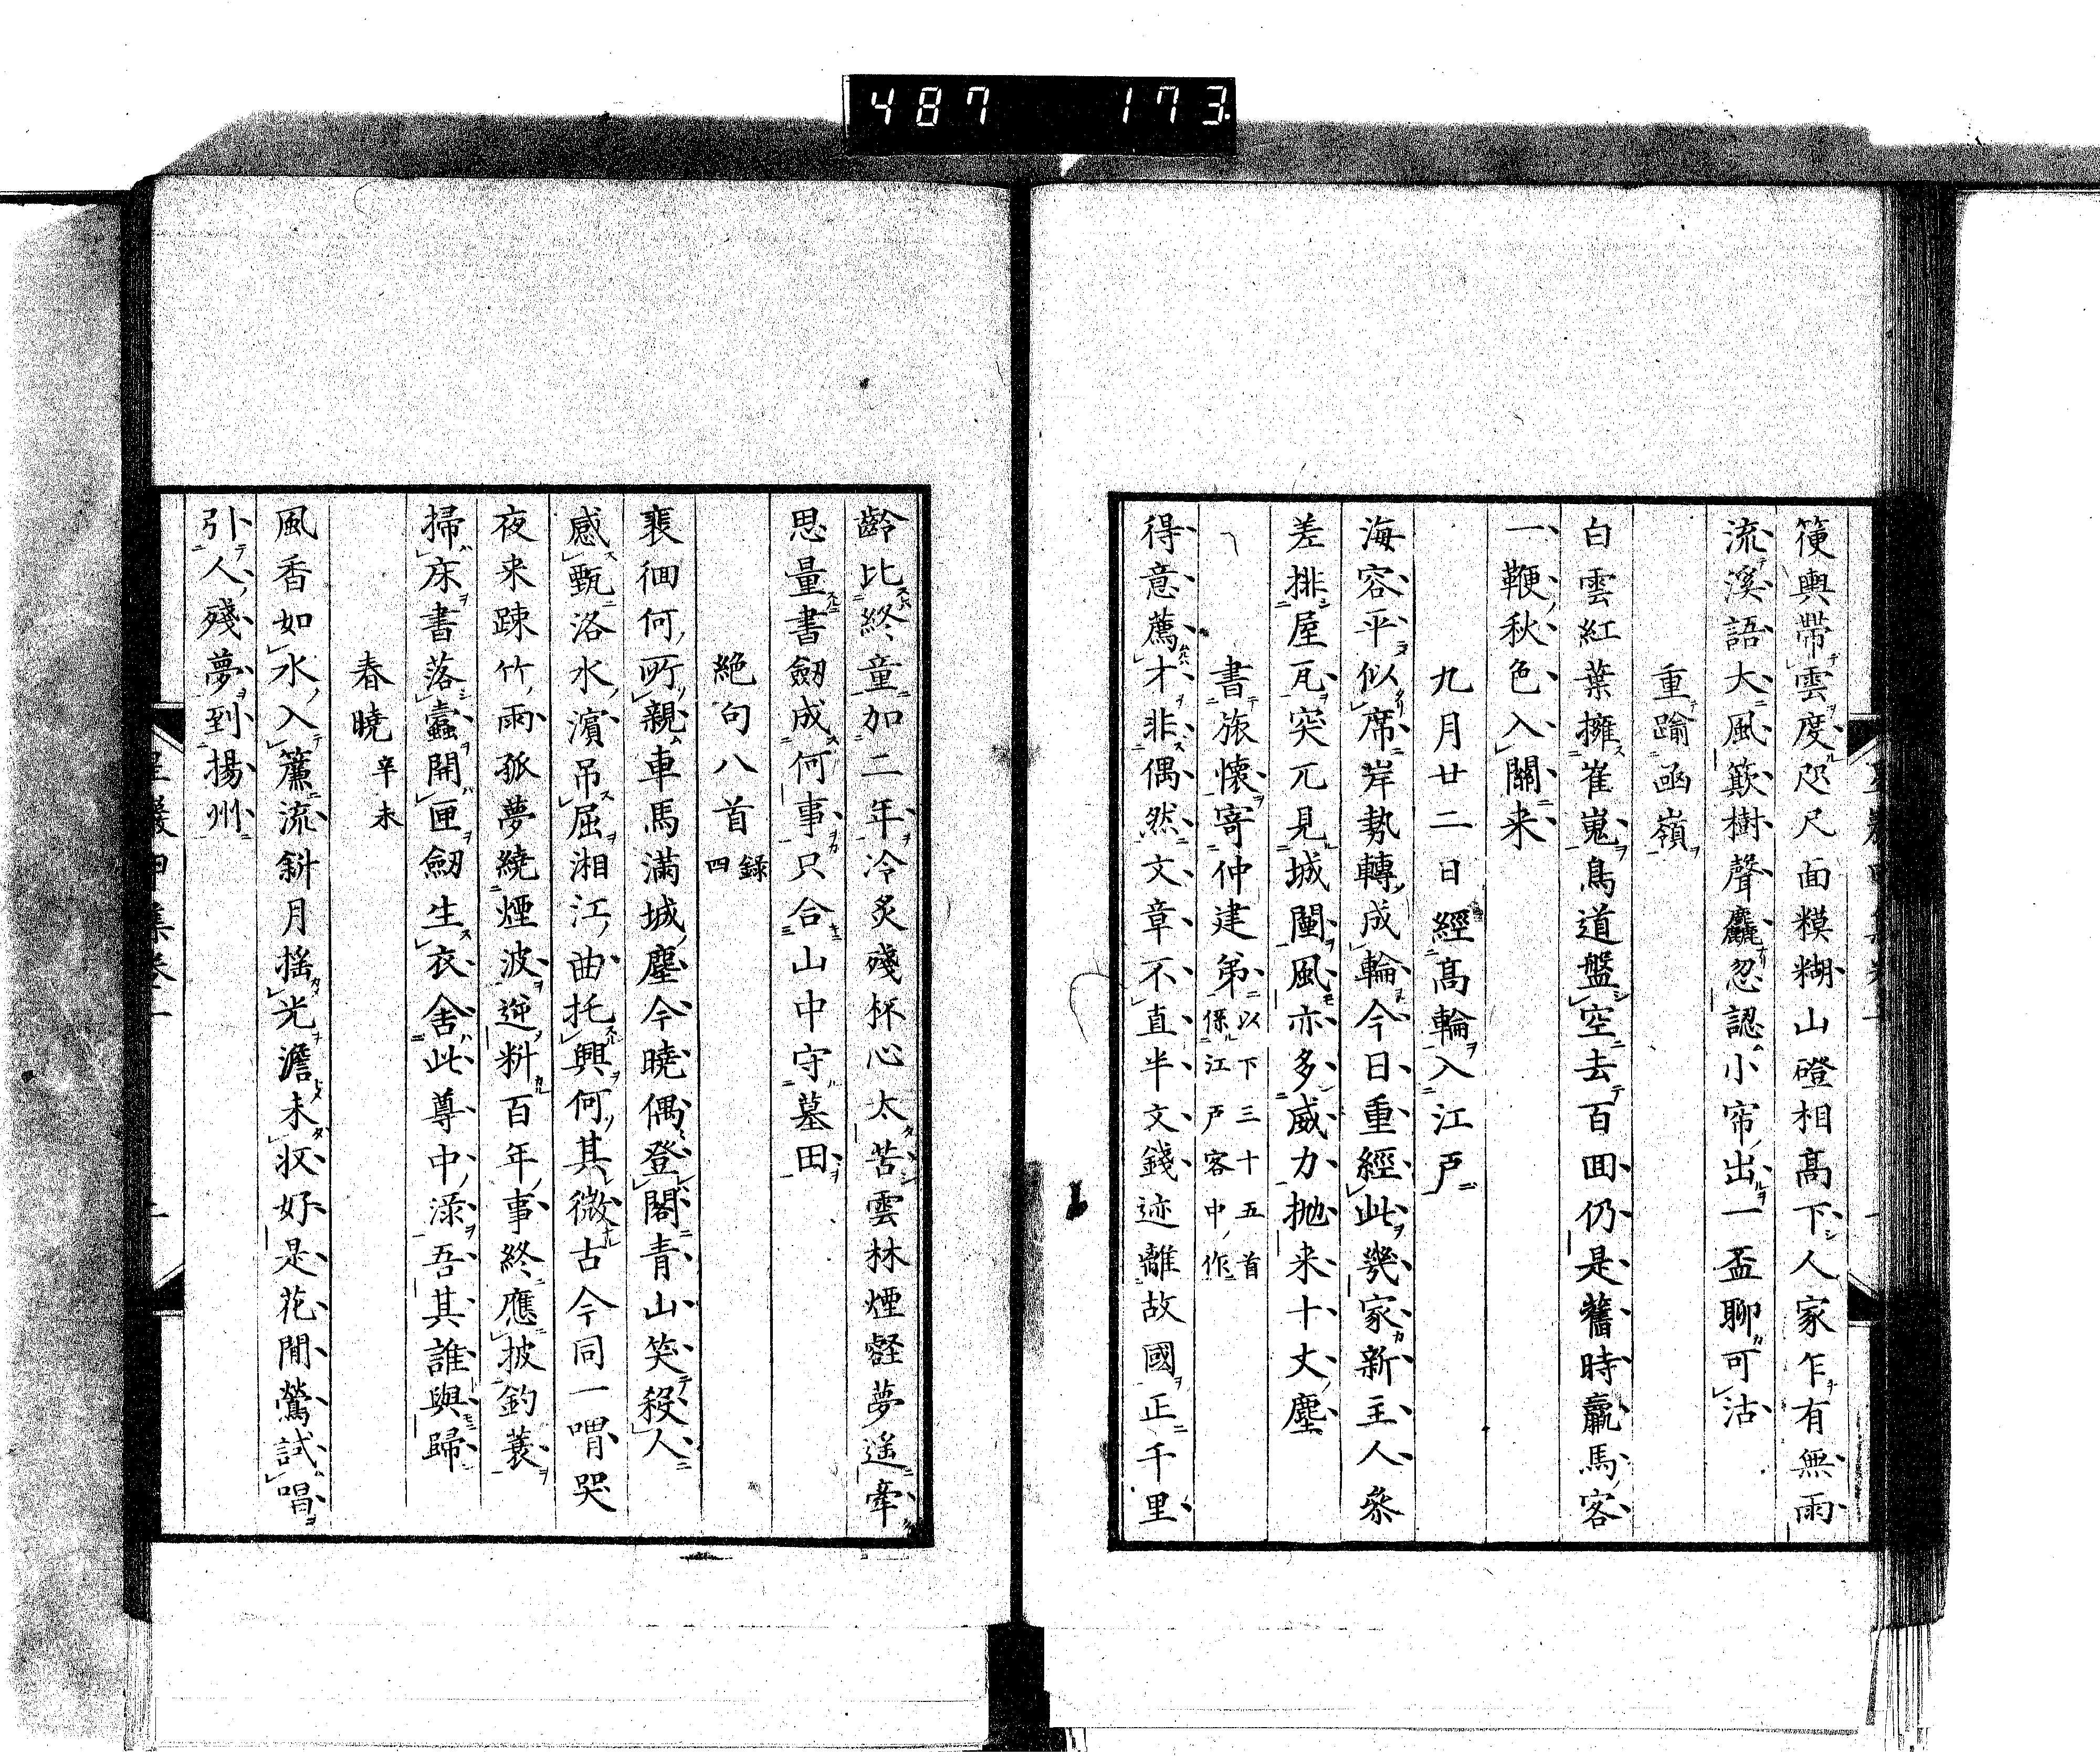 487 173
箯輿帶雲度咫尺面糢糊山磴相高下人家乍有無雨
流溪語大風簸樹聲麤忽認小帘出一盃聊可沽
重踰函嶺
白雲紅葉擁崔嵬鳥道盤空去百囬仍是舊時羸馬客
一鞭秋色入關来
九月廿二日經高輪入江戸
海容平似席岸勢轉成輪今日重經此幾家新主人參
差排屋瓦突兀見城闉風亦多威力抛来十丈塵
書旅懷寄仲建弟以下三十五首係江戸客中作
得意薦才非偶然文章不直半文錢迹離故國正千里
齡比終童加二年冷炙殘杯心太苦雲林煙壑夢遙牽
思量書劔成何事只合山中守墓田
絶句八首錄四
裴徊何所親車馬滿城塵今曉偶登閣青山笑殺人
感甄洛水濱吊屈湘江曲托興何其微古今同一喟哭
夜来踈竹雨孤夢繞煙波逆料百年事終應披釣蓑
掃床書落蠹開匣劔生衣舍此尊中渌吾其誰與歸
春曉辛未
風香如水入簾流斜月搖光澹未收好是花間鶯試唱
引人殘夢到揚州